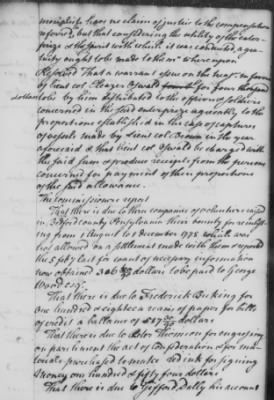 have no claim of justice to the compensation
referred, but that considering the utility of the enter-
prize & the spirit with which it was conducted, a gra-
tuity ought to be made to them whereupon
Resolved That a warrant issue on the treasr in favour
by lieut col Eleazer Oswald for four thousand
dollars to be by him distributed to the officers & soldiers
concerned in the said enterprize agreeably to the
proportions established in the case of captures
of vessels made by lieut col Brown in the year
aforesaid & that lieut col Oswald be charged with
the said sum & produce receipts from the persons
concerned for payment of their proportions
of the said allowance.
The commissioners report
That there is due to three companies of volunteers raised
in Bedford county Pensylvania their bounty for reinlist-
ing from 1 August to 1 december 1778 which was
not allowed on a settlement made with them & reported
the 5 July last for want of necessary information
now obtained 306 dollars to be paid to George
Wood esqr.
That there is due to Frederick Bicking for
one hundred & eighteen reams of paper for bills
of credit a ballance of dollars
That there is due to Peter Thomson for engrossing
on parchment the act of Confederation & for ma-
terials purchased to make red ink for signing
money one hundred & fifty four dollars
That there is due to Gifford Dally his account